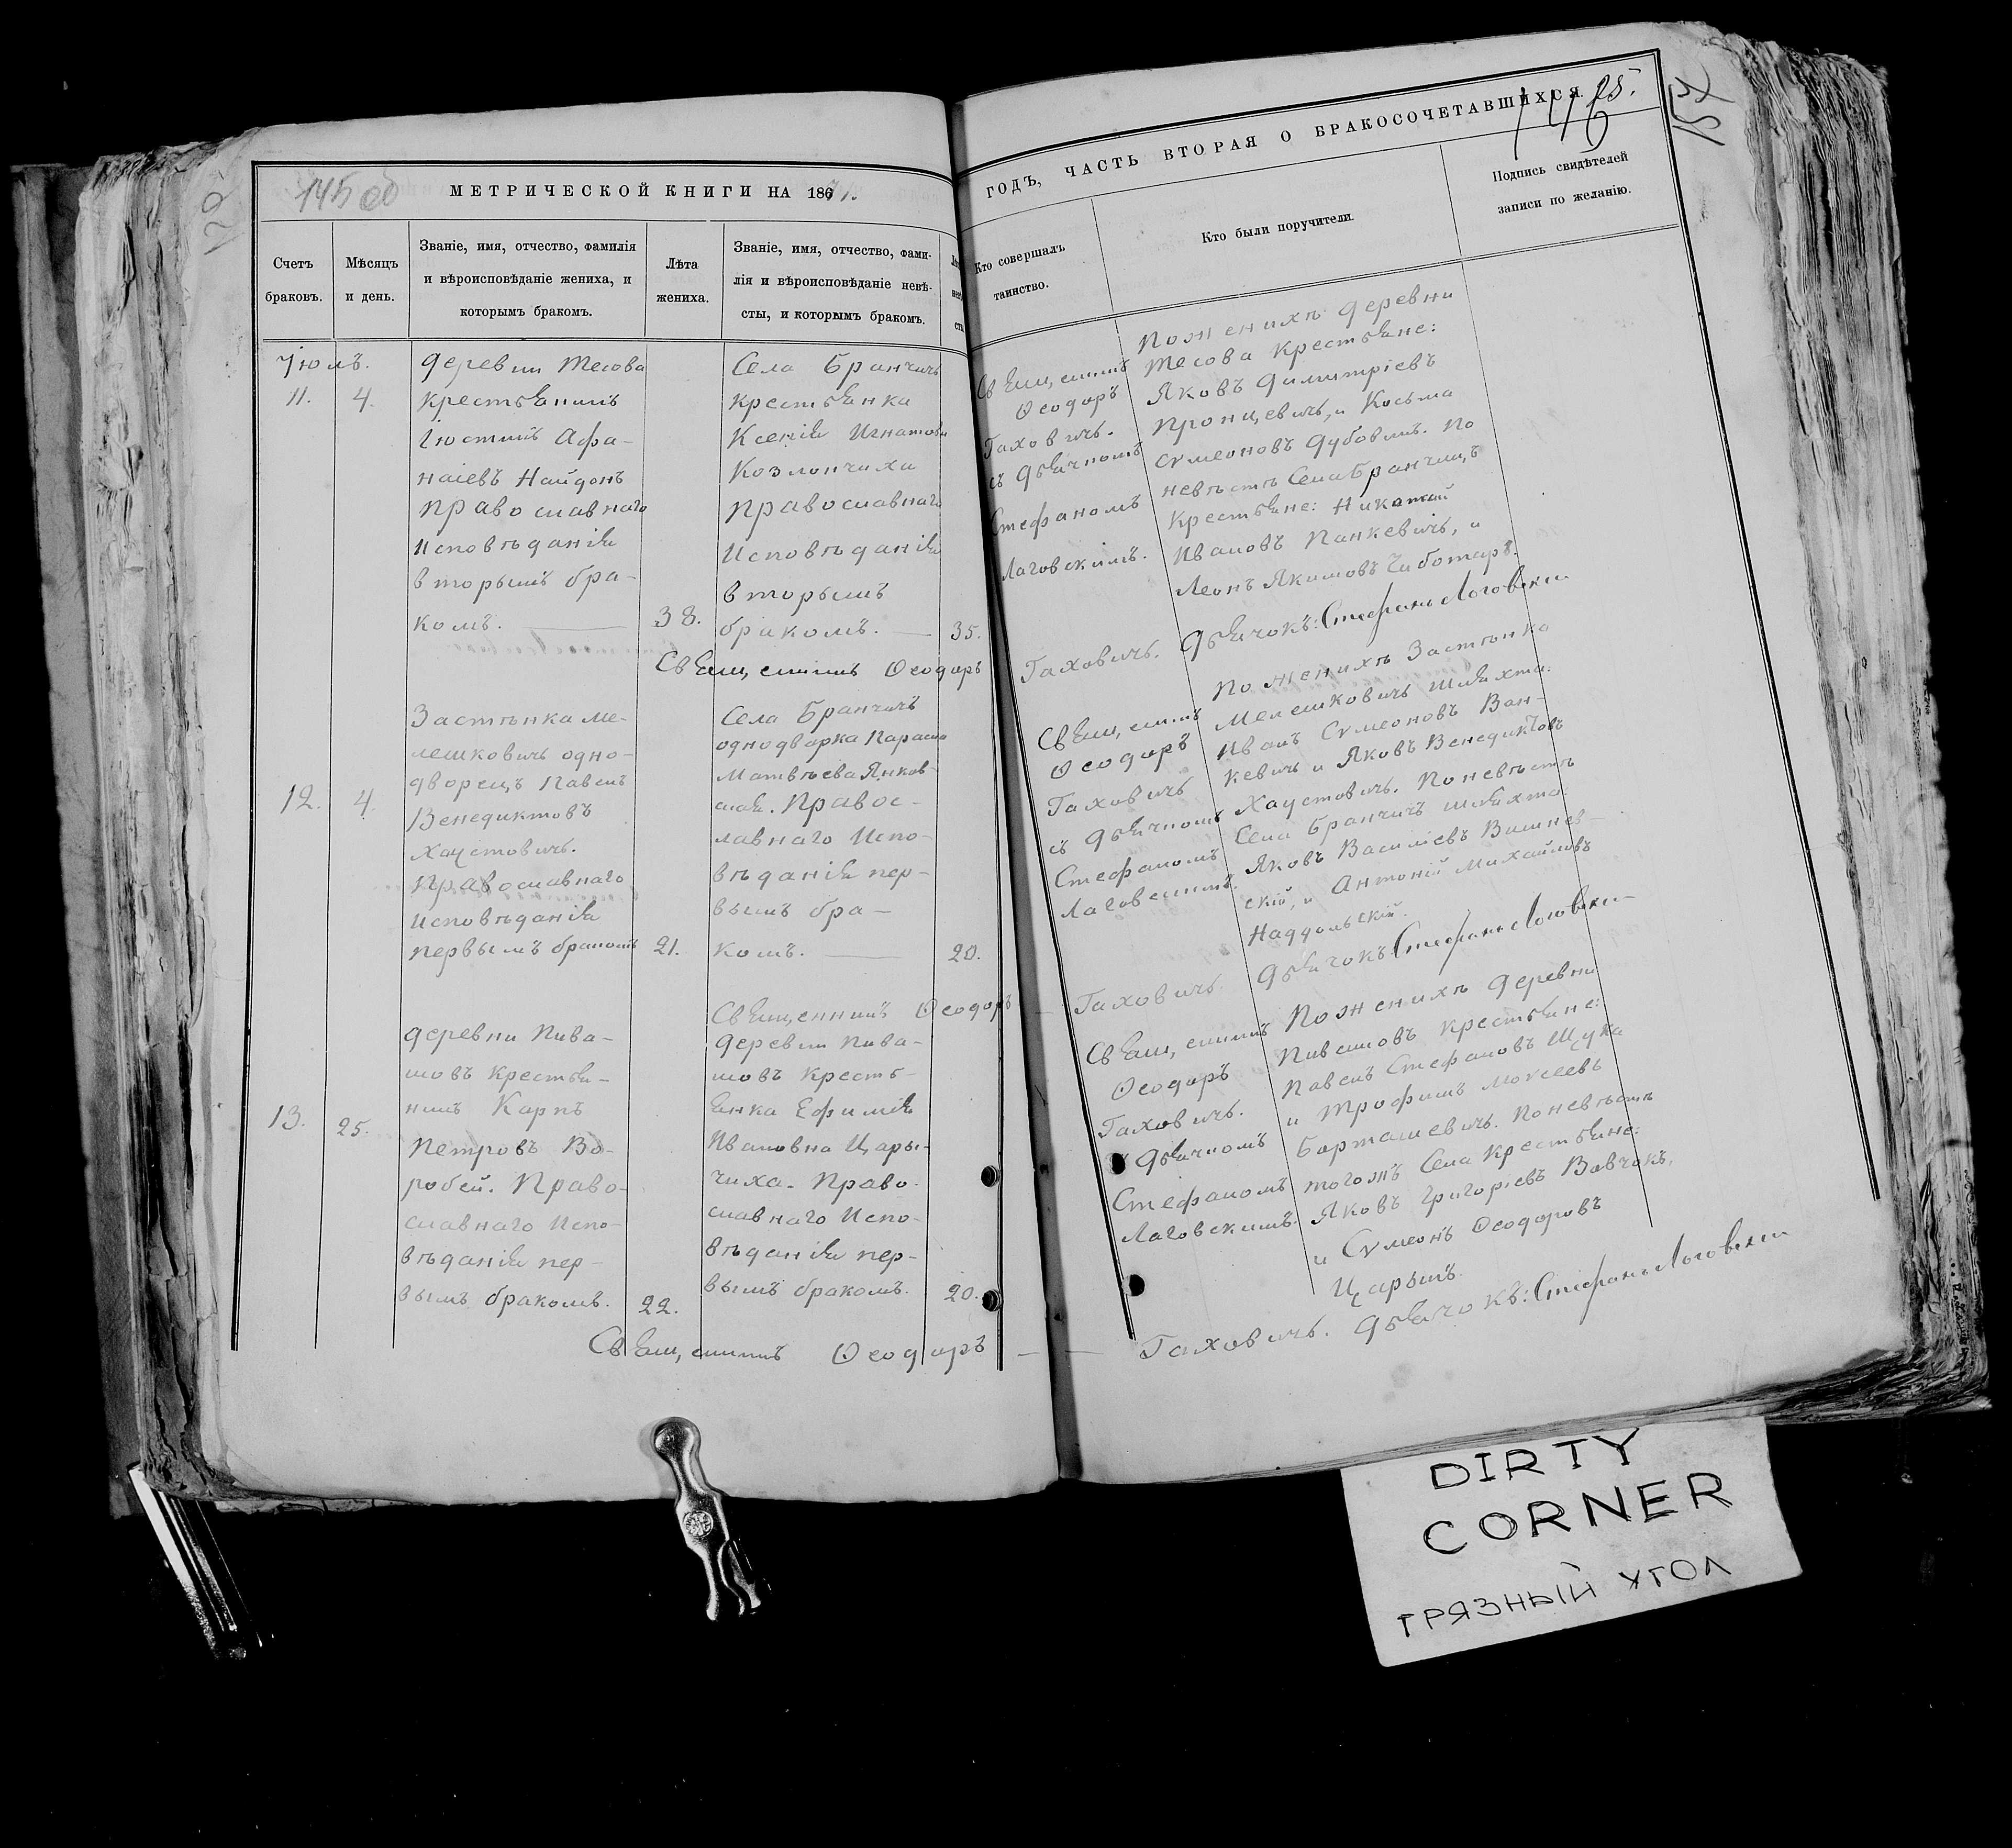 145 об
МЕТРИЧЕСКОЙ КНИГИ НА 1871.
Счетъ
браковъ.
Мѣсяцъ
и день.
Званіе, имя, отчество, фамилія
и вѣроисповѣданіе жениха, и
которымъ бракомъ.
Лѣта
жениха.
Званіе, имя, отчество, фами-
лія и вѣроисповѣданіе невѣ-
сты, и которымъ бракомъ.
Іюль.
11.
4.
деревни Тесова
крестьянинъ
Іюстинъ Афа-
насіевъ Найдонъ
православнаго
исповѣданія
вторымъ бра-
комъ.
38.
Села Бранчичь
крестьянка
Ксенія Игнатова
Козлончиха
православнаго
исповѣданія
вторымъ
бракомъ.
35.
Священникъ Ѳеодоръ
12.
4.
Застѣнка Ме-
лешковичь одно-
дворецъ Павелъ
Венедиктовъ
Хаустовичь.
православнаго
исповѣданія
первымъ бракомъ
21.
Села Бранчичь
однодворка Параска
Матвѣева Янков-
ская. Правос-
лавнаго испо-
вѣданія пер-
вымъ бра-
комъ.
20.
Священникъ Ѳеодоръ
13.
25.
деревни Пива-
шовъ крестья-
нинъ Карпъ
Петровъ Во-
робей. Право-
славнаго испо-
вѣданія пер-
вымъ бракомъ.
22.
деревни Пива-
шовъ кресть-
янка Ефимія
Ивановна Цары-
чиха. Право-
славнаго испо-
вѣданія пер-
вымъ бракомъ.
20.
Священникъ Ѳеодоръ
ГОДЪ, ЧАСТЬ ВТОРАЯ О БРАКОСОЧЕТАВШИХСЯ.
146
25.
154
Кто совершалъ
таинство.
Кто были поручители.
Подпись свидѣтелей
записи по желанію.
Священникъ
Ѳеодоръ
Гаховичь.
съ дьячкомъ
Стефаномъ
Лаговскимъ.
По женихѣ деревни
Тесова крестьяне:
Яковъ Димитріевъ
Пронцевичь, и Косьма
Сумеоновъ Дубовикъ. По
невѣстѣ Села Бранчичь
крестьяне: Николай
Ивановъ Панкевичь, и
Леонъ Якимовъ Чиботаръ.
Гаховичь. Дьячокъ: Стефанъ Логовски
Священникъ
Ѳеодоръ
Гаховичь
съ дьячкомъ
Стефаномъ
Лаговскимъ.
По женихѣ Застѣнка
Мелешковичь шляхта:
Иванъ Сумеоновъ Ван-
кевичь и Яковъ Венедиктовъ
Хаустовичь. По невѣстѣ
Села Бранчичь шляхта:
Яковъ Василіевъ Вишнев-
скій, и Антоній Михайловъ
Наддольскій.
Гаховичь. Дьячокъ: Стефанъ Логовски
Священникъ
Ѳеодоръ
Гаховичь.
съ дьячкомъ
Стефаномъ
Лаговскимъ.
По женихѣ деревни
Пивашовъ крестьяне:
Павелъ Стефановъ Щука
и Трофимъ Моисеевъ
Барташевичь. По невѣстѣ
тогожъ Села крестьяне:
Яковъ Григоріевъ Вовчокъ,
и Сумеонъ Ѳеодоровъ
Царыкъ.
Гаховичь. Дьячокъ: Стефанъ Логовски
DIRTY
CORNER
ГРЯЗНЫЙ УГОЛ